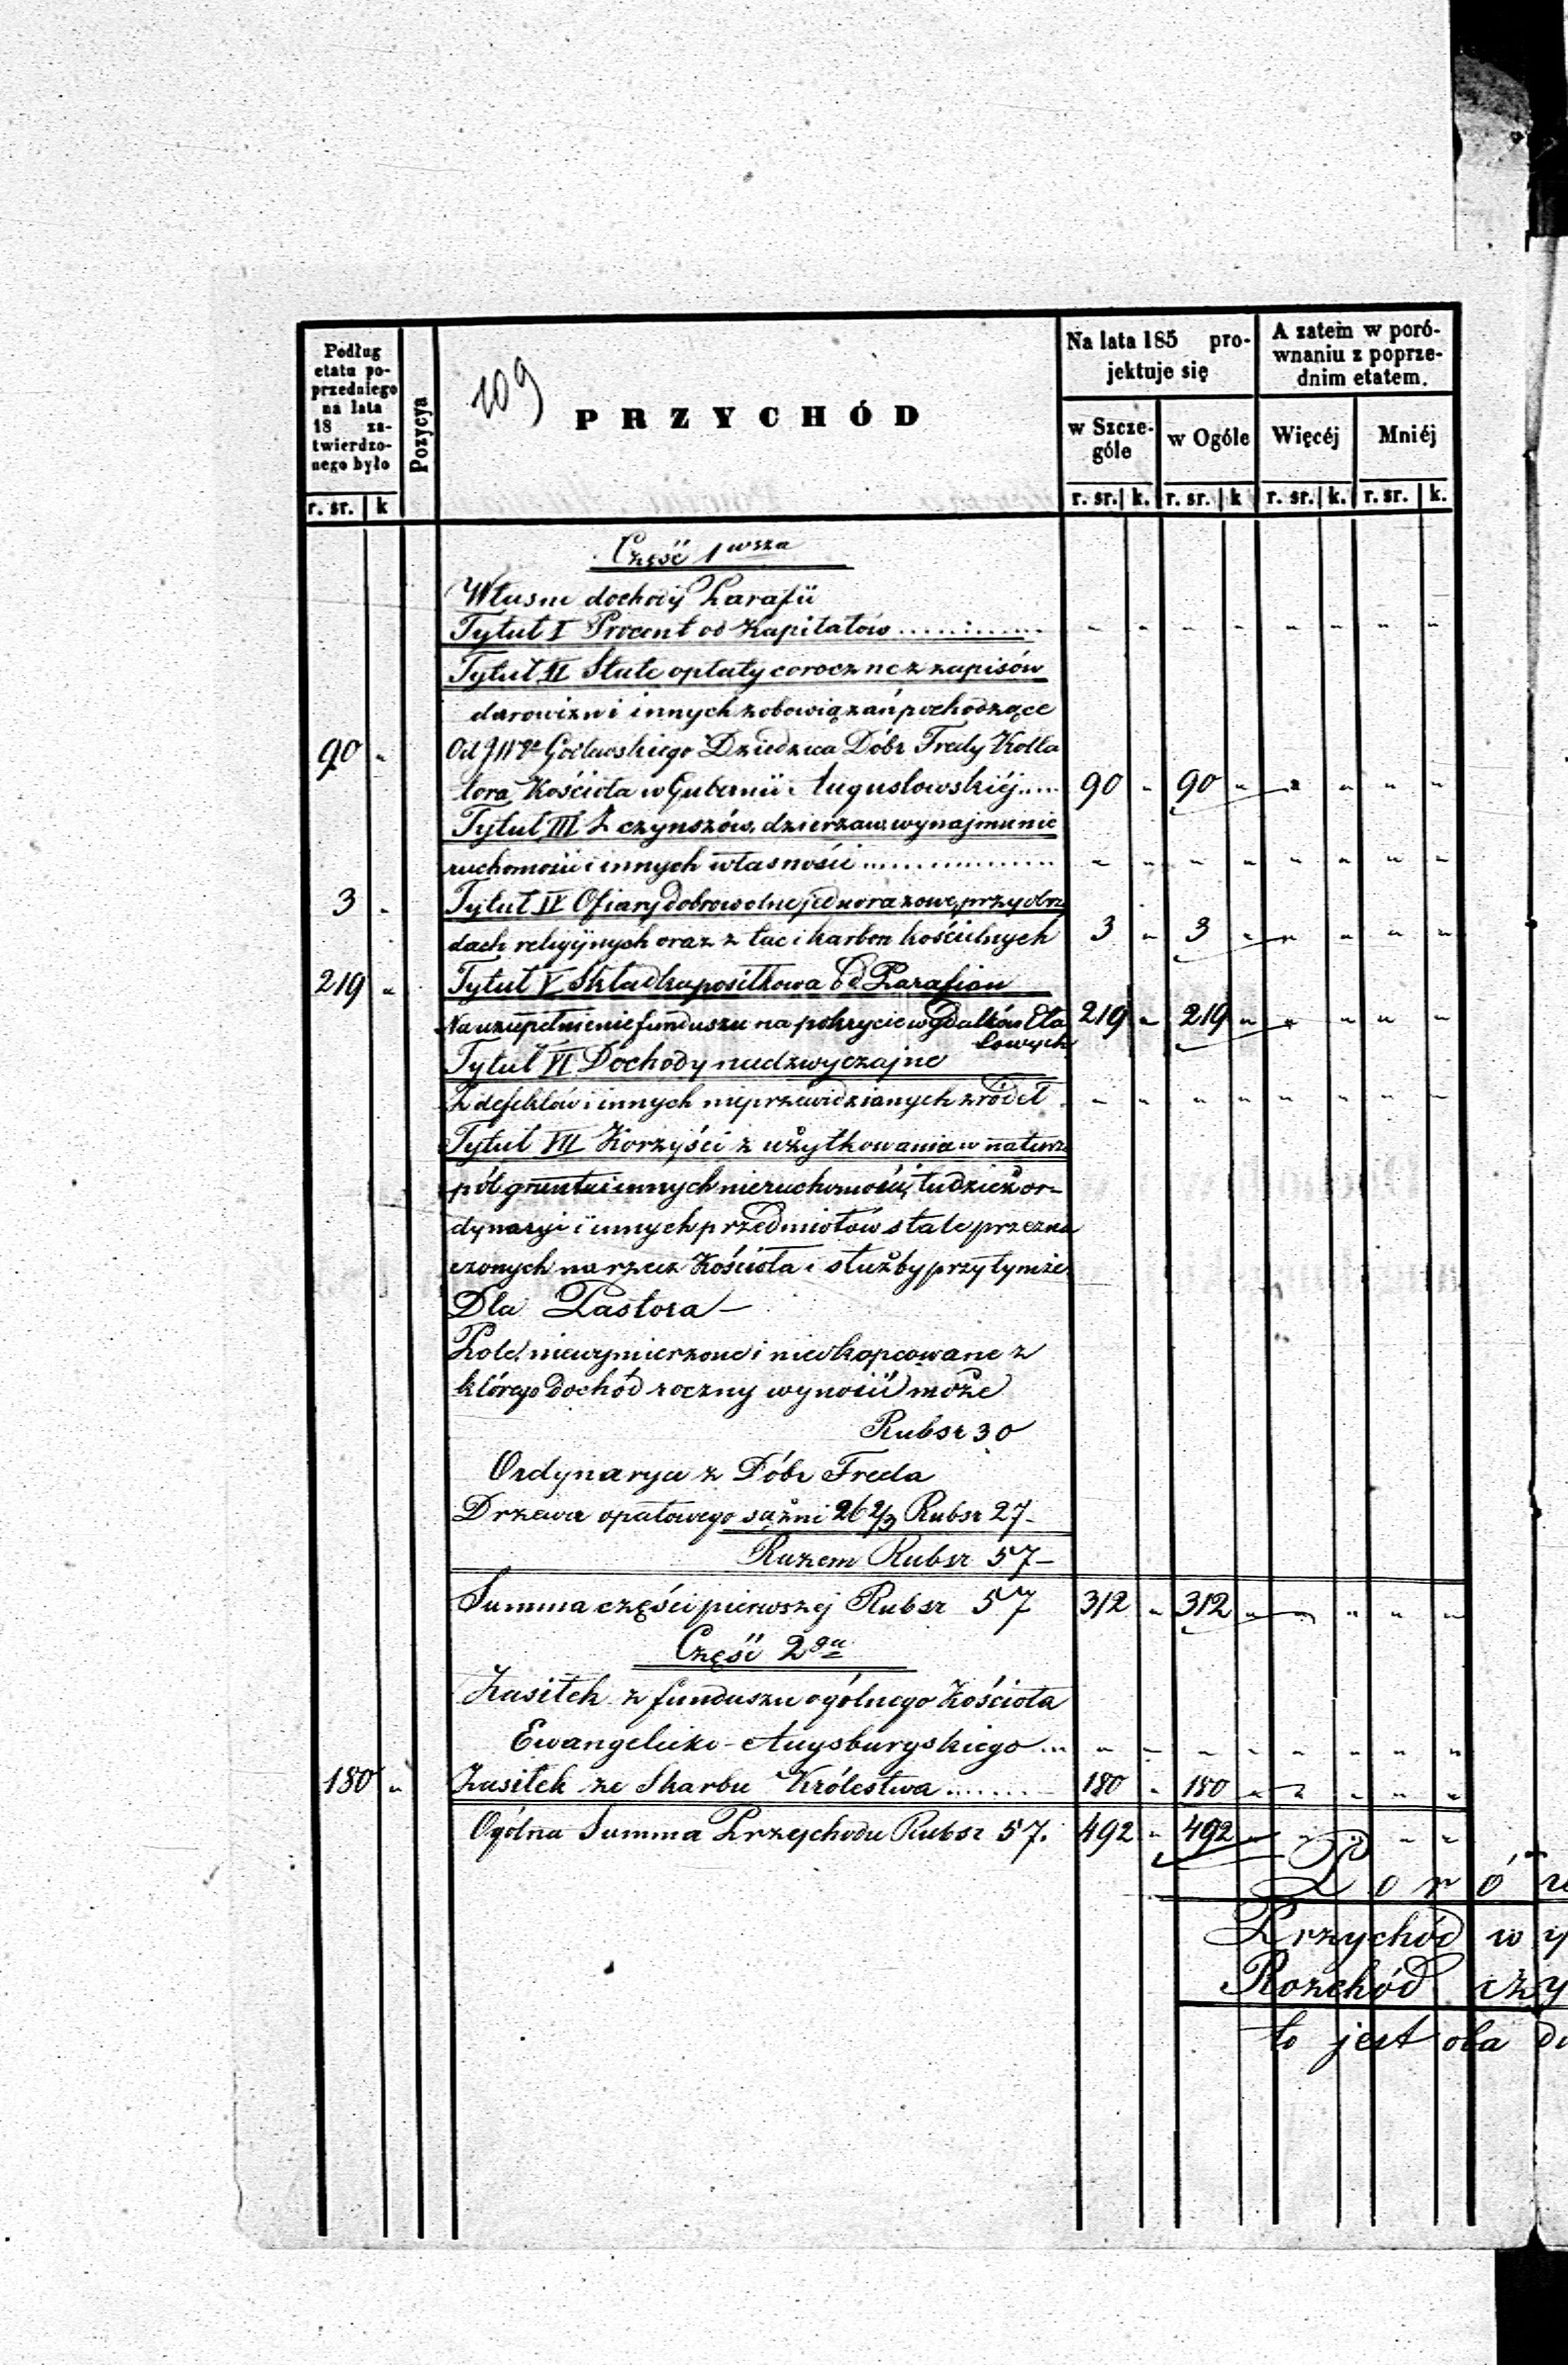 Podług etatu poprzedniego na lata 18 zatwierdzonego było
Pozycya
109
PRZYCHÓD
Na lata 185 projektuje się
A zatem w porównaniu z poprzednim etatem.
w Szczególe
w Ogóle
Więcéj
Mniéj
r. sr. k
r. sr. k. r. sr. k r. sr. k. r. sr. k.
Część 1wsza
Własne dochody Parafii
Tytuł I Procent od Kapitałów ........... " " " " " " " "
Tytuł II Stałe opłaty coroczne z zapisów
darowizn i innych zobowiązań pochodzące
90 " Od Dziedzica Dóbr Fredy Kolla
tora Kościoła w Gubernii Augustowskiéj.... 90 " 90 " " " " "
Tytuł III Z czynszów, dzierzaw, wynajmu nie
ruchomości i innych własności ................ " " " " " " " "
3 " Tytuł IV Ofiary dobrowolne jednorazowe, przy obrzę
dach religijnych oraz z tac i karbon kościelnych 3 " 3 " " " " "
219 " Tytuł V Składka posiłkowa od Parafian
Na uzupełnienie funduszu na pokrycie wydatków Eta
towych 219 " 219 " " " " "
Tytuł VI Dochody nadzwyczajne
Z defektów i innych nieprzewidzianych zródeł " " " " " " " "
Tytuł VII Korzyści z użytkowania w naturze
pól gruntu i innych nieruchomości, tudzież or-
dynaryi i innych przedmiotów stale przezna
czonych na rzecz Kościoła i służby przy tymże.
Dla Pastora –
Pole niewymierzone i nieokopcowane z
którego dochód roczny wynosić może
Rubsr 30
Ordynarya z Dóbr Freda
Drzewa opałowego sążni 26 2/3 Rubsr 27–
Razem Rubsr 57–
Summa części pierwszej Rubsr 57 312 " 312 " " " " "
Część 2ga
Zasiłek z funduszu ogólnego Kościoła
Ewangelicko-Augsburgskiego ... " " " " " " " "
180 " Zasiłek ze Skarbu Królestwa ........ 180 " 180 " " " " "
Ogólna Summa Przychodu Rubsr 57. 492 " 492 " " " " "
Poró
Przychód w
Rozchód
to jest oba